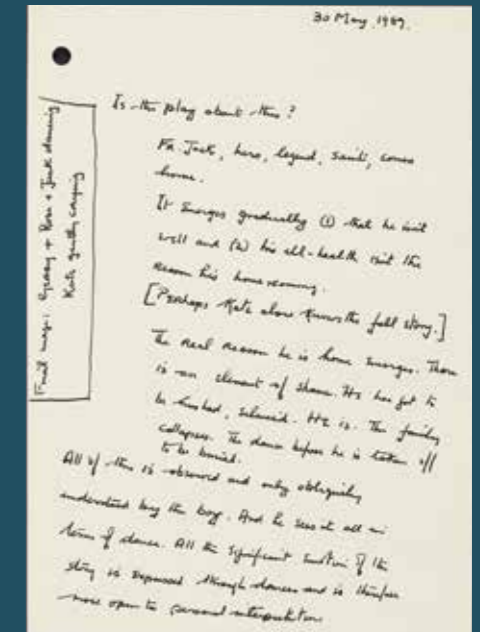 30 May 1989.
Is this play about this?
Fr Jack, hero, legend, saint, comes
home.
It emerges gradually (1) that he isn't
well and (2) his ill-health isn't the
reason his homecoming.
[Perhaps Kate alone knows the full story.]
The real reason he is home emerges. There
is an element of shame. He has got to
be hushed, silenced. He is. The family
collapses. The dance before he is taken off
to be buried.
All of this is observed and only obliquely
understood by the boy. And he sees it all in
terms of dance. All the significant emotion of the
story is expressed through dances and is therefore
more open to personal interpretation
Final image: Rose + Jack dancing
Kate quietly crying